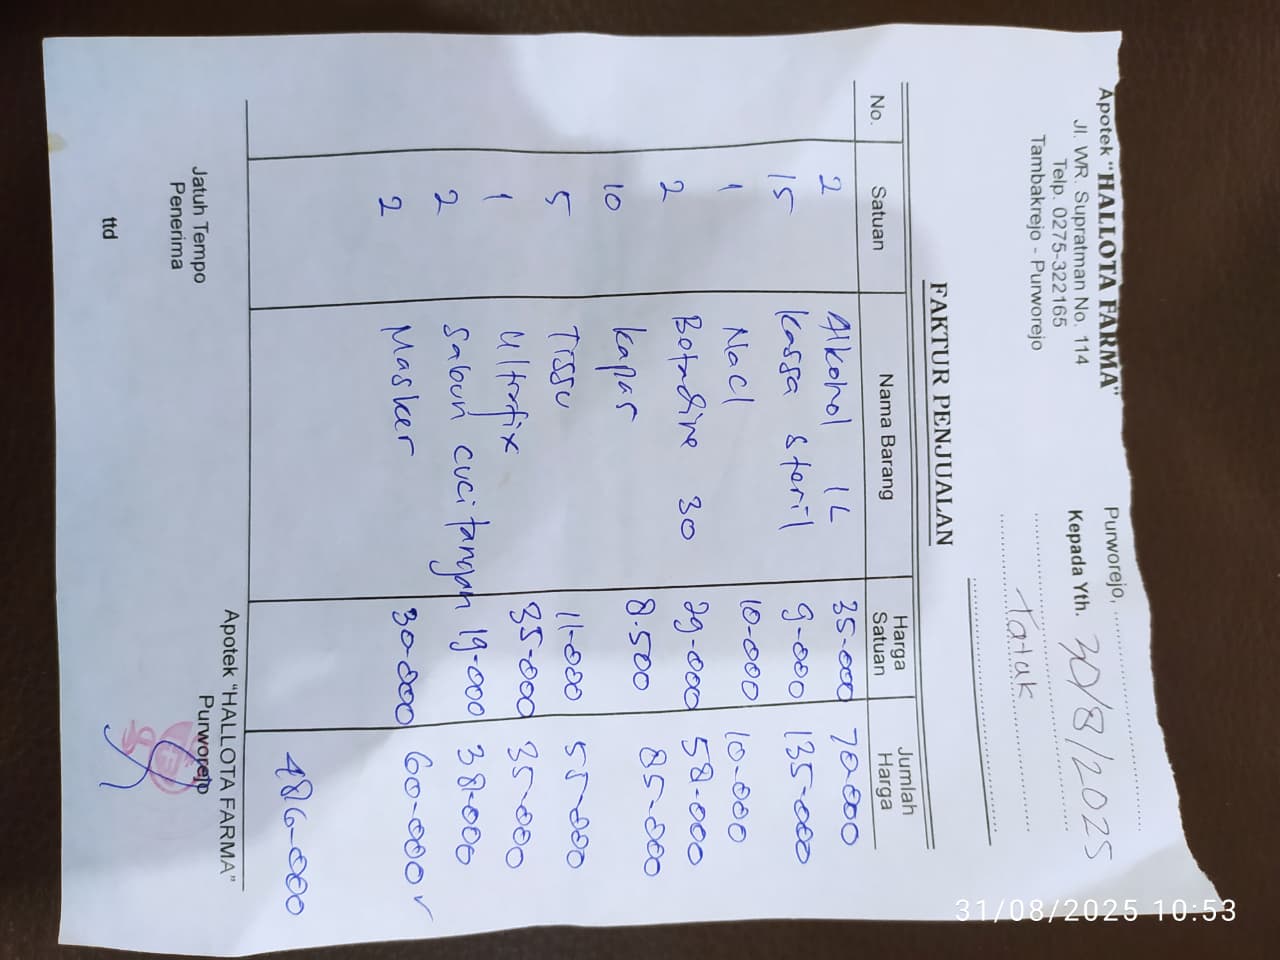 Apotek "HALLOTA FARMA"
Jl. WR. Supratman No. 114
Telp. 0275-322165
Tambakrejo - Purworejo
Purworejo,
Kepada Yth. 30/8/2025
Tatuk
FAKTUR PENJUALAN
No. Satuan Nama Barang Harga Satuan Jumlah Harga
2 Alkohol 1L 35.000 70.000
15 Kassa steril 9.000 135.000
1 Nacl 10.000 10.000
2 Betadine 30 29.000 58.000
10 Kapas 8.500 85.000
5 Tissu 11.000 55.000
1 Ultrafix 35.000 35.000
2 Sabun cuci tangan 19.000 38.000
2 Masker 30.000 60.000
486.000
Jatuh Tempo
Penerima
ttd
Apotek "HALLOTA FARMA"
Purworejo
31/08/2025 10:53